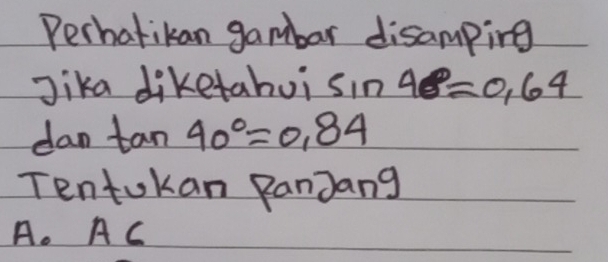 Perhatikan gambar disamping
Jika diketahui sin 40°=0,64
dan tan 40°=0,84
Tentukan Panjang
A. AC